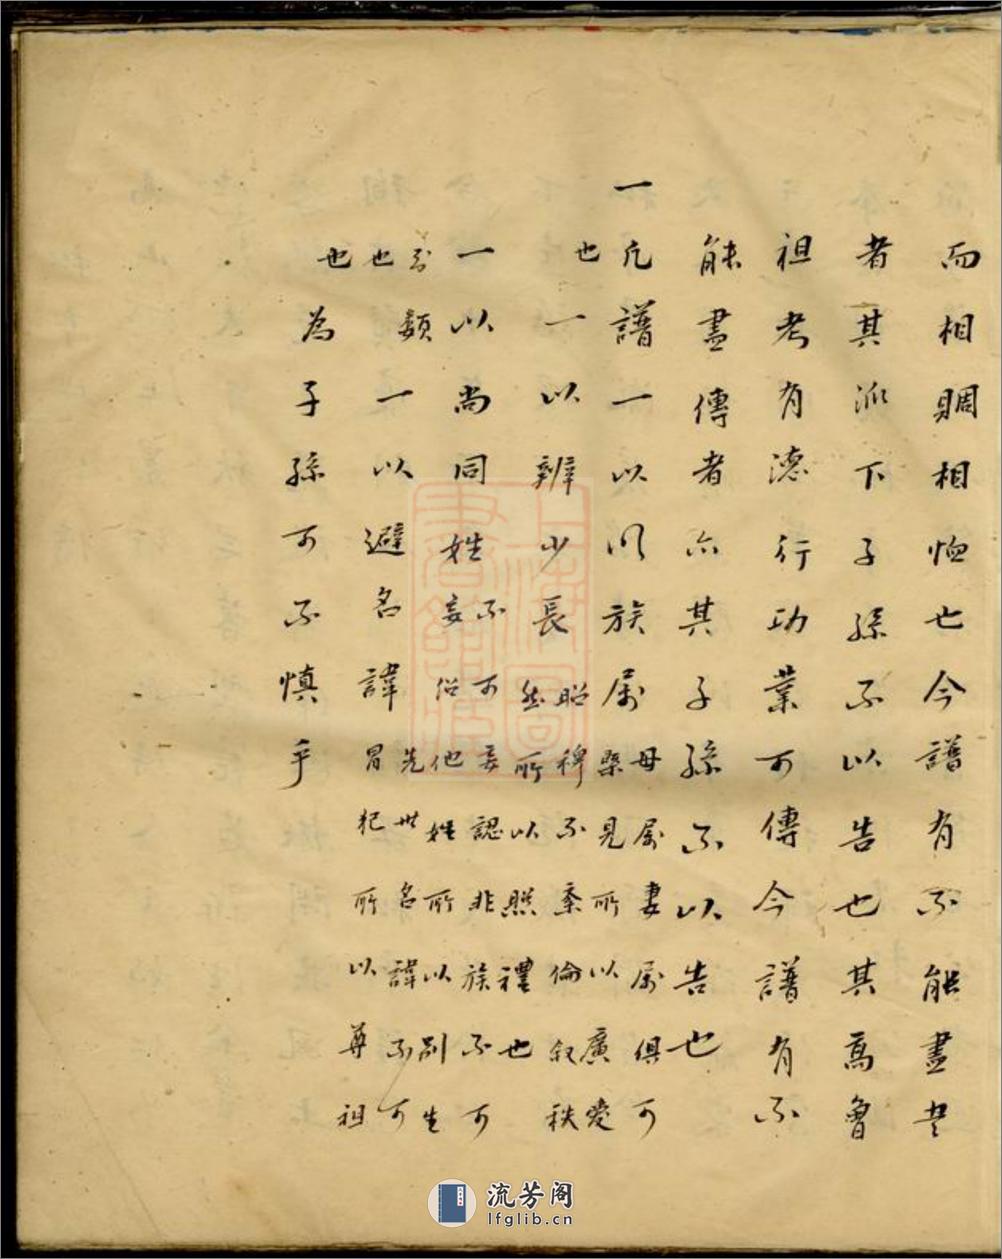 而相賙相恤也今譜有不能盡書
者其派下子孫不以告也其高曾
祖考有德行功業可傳今譜有不
能盡傳者亦其子孫不以告也
一凡譜一以族屬母屬妻屬俱可槩見所以廣愛
也一以辨少長昭穆不紊倫叙秩然所以照禮也
一以尚同姓不可妄認非族不可妄從他姓所以別生
分類也一以避名諱先世名諱不可冒犯所以尊祖
也為子孫可不慎乎
上海圖書館藏
流芳阁
lfglib.cn